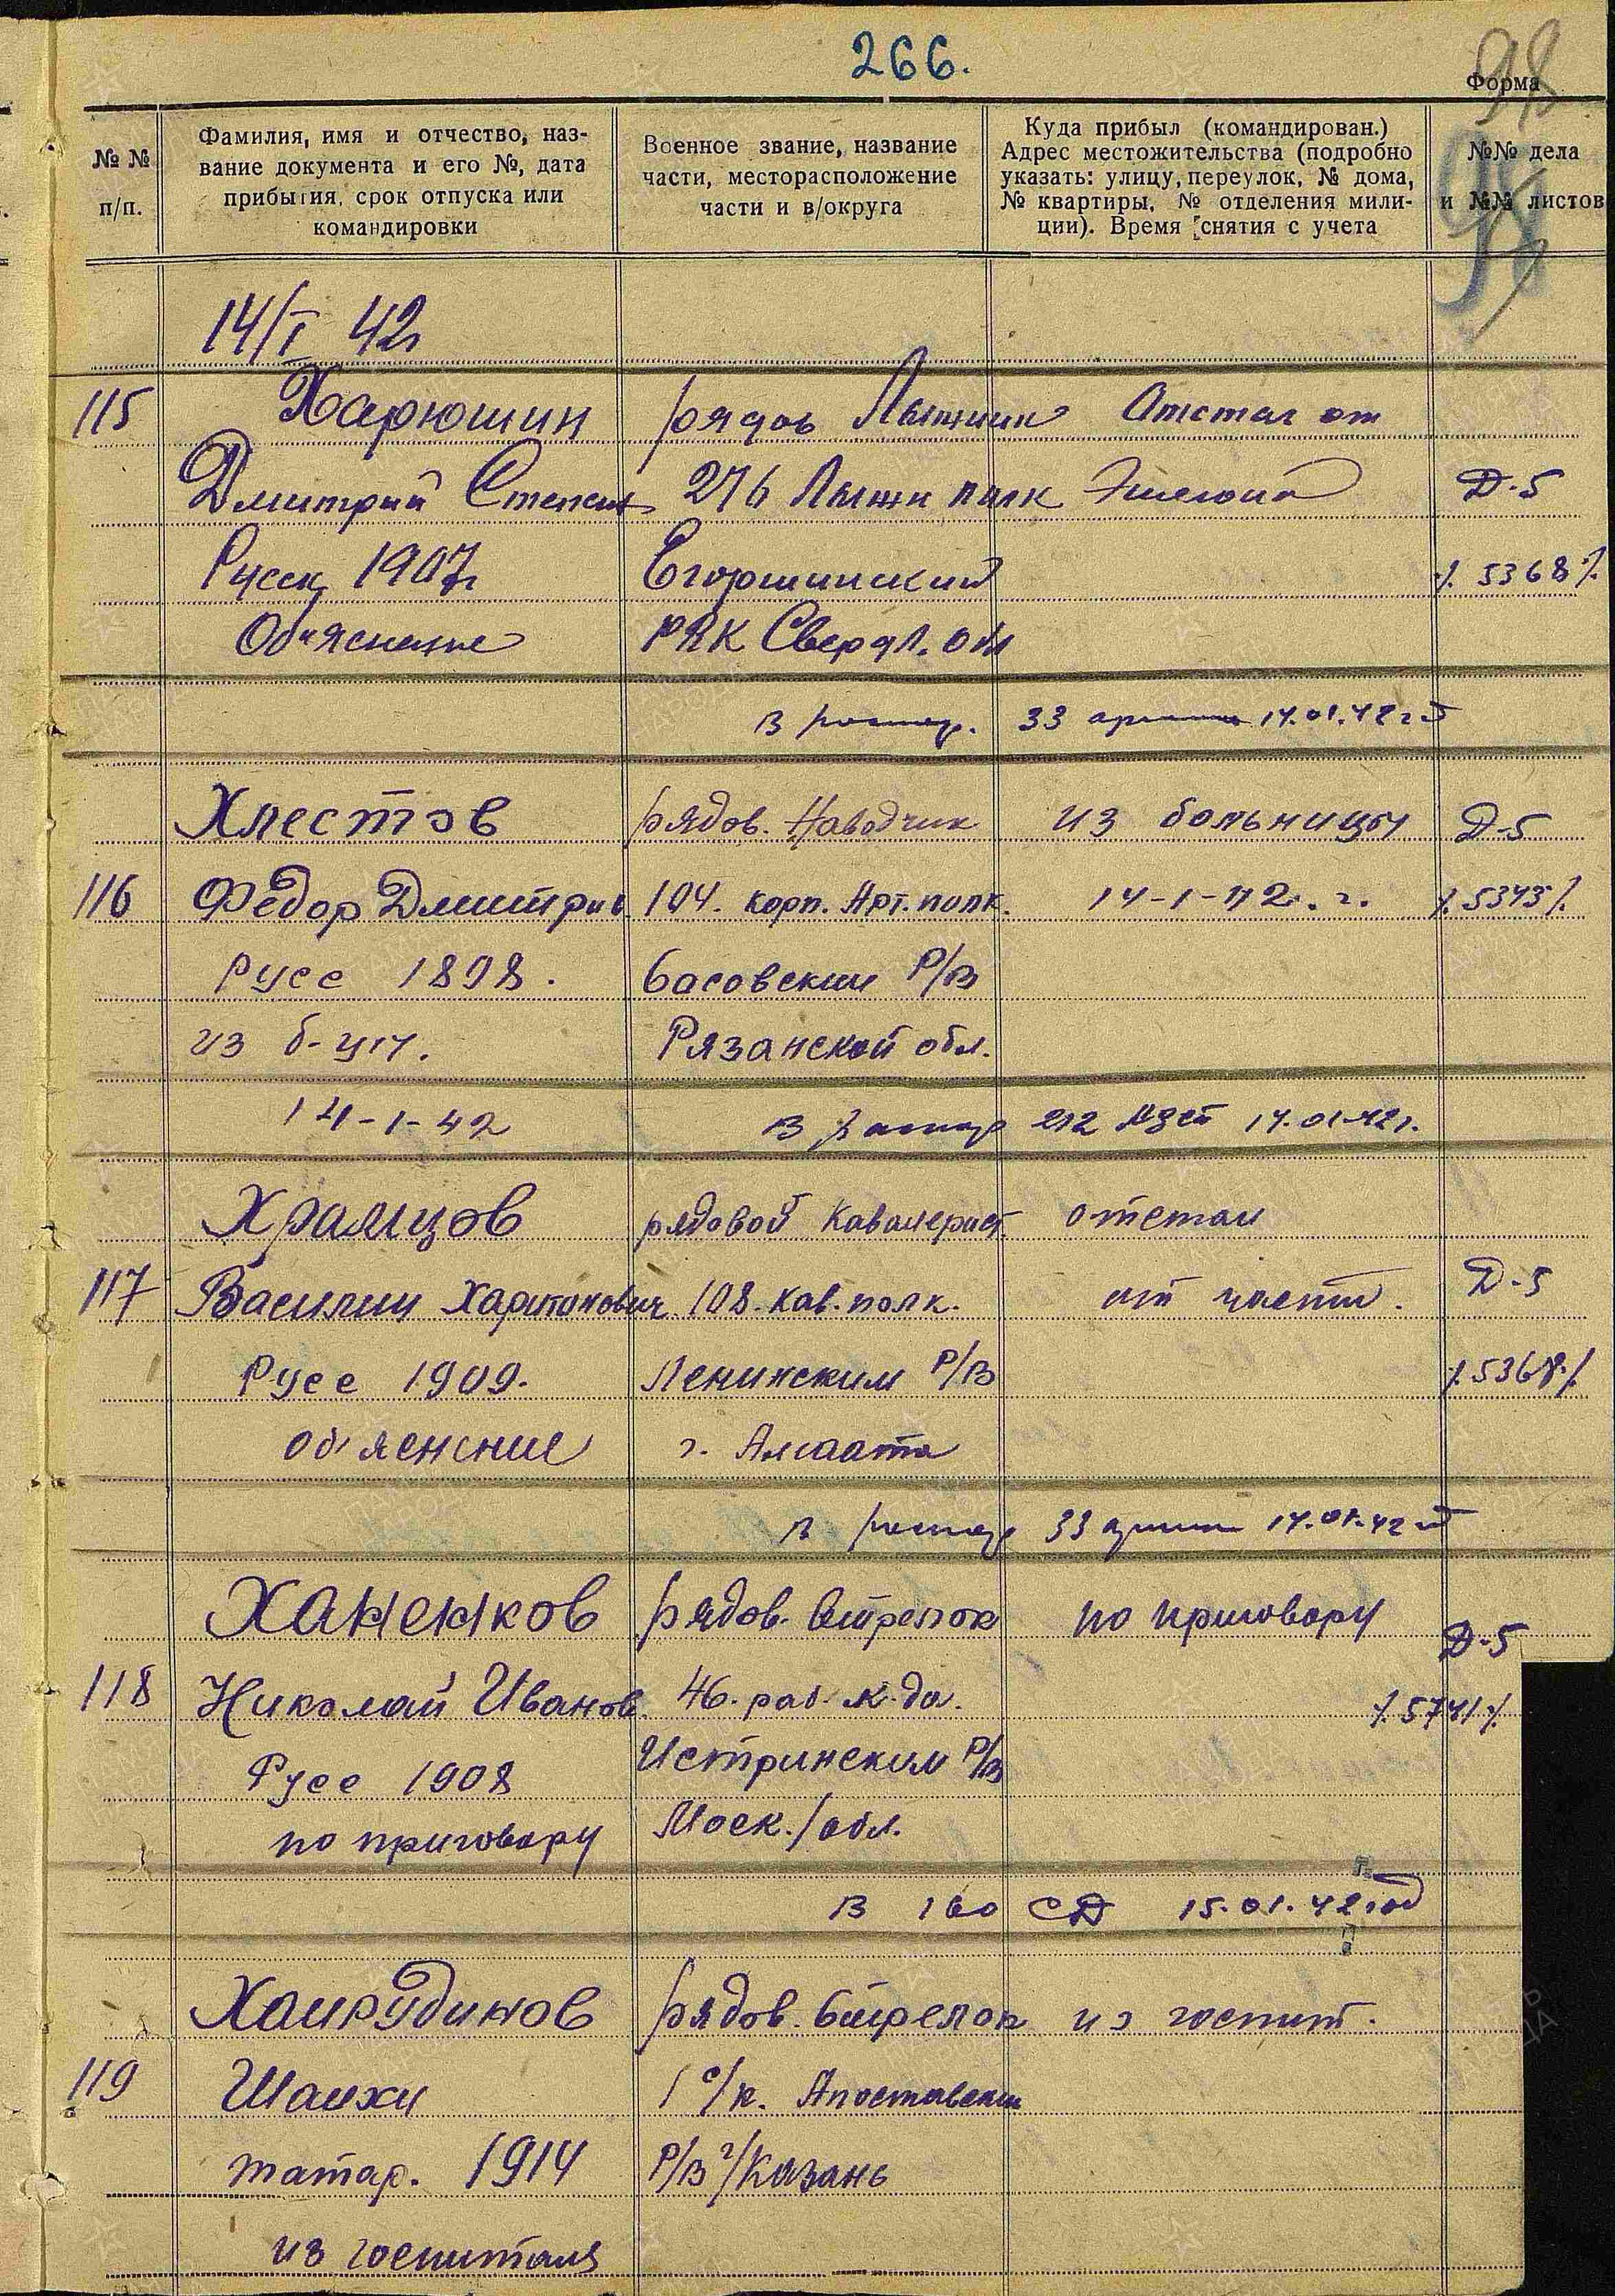 266.
98
Форма
№ № п/п.
Фамилия, имя и отчество, наз-
вание документа и его №, дата
прибытия, срок отпуска или
командировки
Военное звание, название
части, месторасположение
части и в/округа
Куда прибыл (командирован.)
Адрес местожительства (подробно
указать: улицу, переулок, № дома,
№ квартиры, № отделения мили-
ции). Время снятия с учета
№№ дела
и №№ листов
14/I 42
115 Харюшин рядов Лыжник Отстал от
Дмитрий Степан 276 Лыжн полк Эшелона Д-5
Русск 1907г Егоршинский ./. 5368 ./.
Объяснение РВК Свердл. обл
в распор. 33 армии 14.01.42г
Хлестов рядов. Наводчик из больницы Д-5
116 Федор Дмитрив 104. корп. Арт. полк. 14-1-42. г. ./. 5343 ./.
Русс 1898. Сасовским Р/В
из б-цы. Рязанской обл.
14-1-42 в распор 212 14.01.42г.
Храмцов рядовой Кавалерист. отстал
117 Василии Харитонович 108. Кав. полк. от части. Д-5
Русс 1909. Ленинским Р/В ./. 5368 ./.
объяснение г. Алмаата
в распор 33 армии 14.01.42
Ханенков рядов. Стрелок по приговору Д-5
118 Николай Иванов. 46. раб. к-да. ./. 5741 ./.
Русс 1908 Истринским Р/В
по приговору Моск./обл.
в 160 СД 15.01.42 год
Хаирудинов рядов. Стрелок из госпит.
119 Шаихи 1 с/п. Апостовским
татар. 1914 Р/В г/Казань
из госпиталя